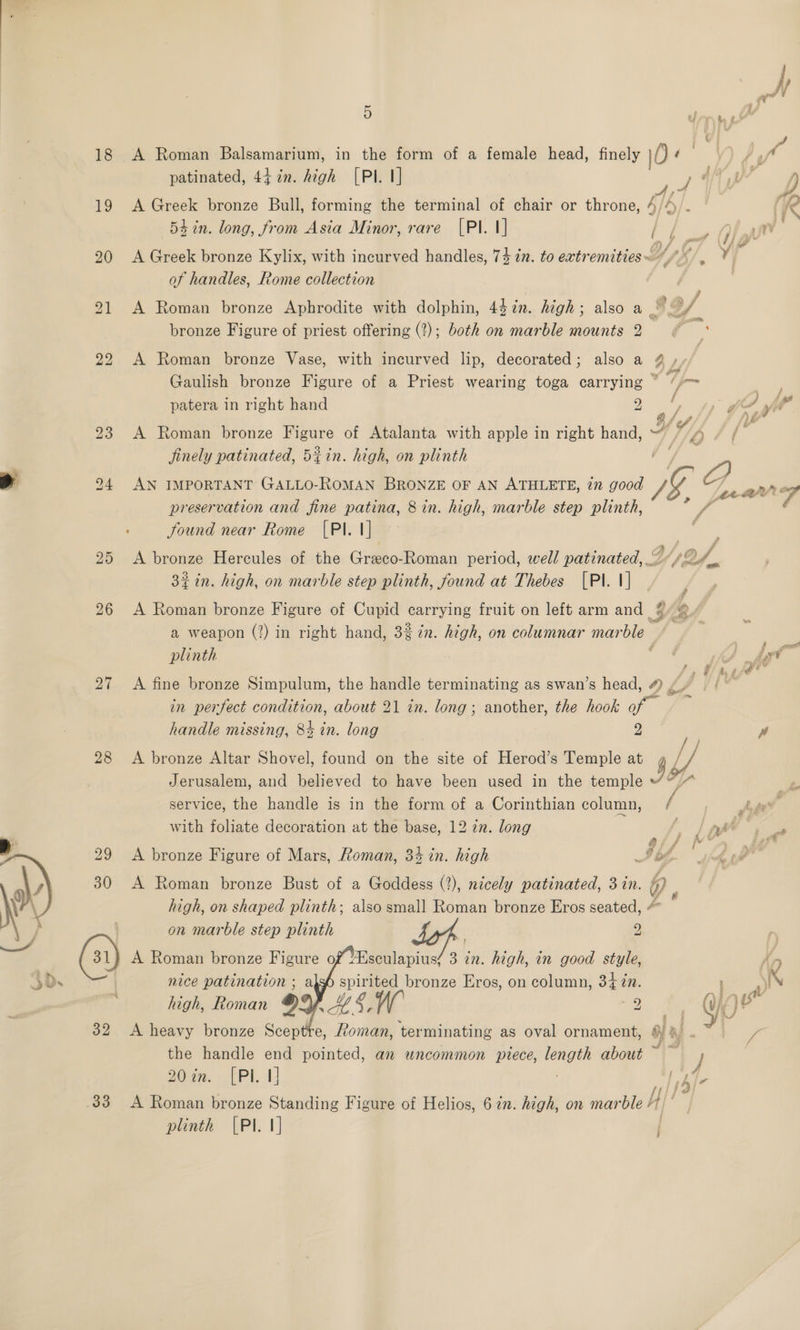 5
18 A Roman Balsamarium, in the form of a female head, finely
patinated, 4¼ in. high [Pl. I]
19 A Greek bronze Bull, forming the terminal of chair or throne,
5½ in. long, from Asia Minor, rare [Pl. I]
20 A Greek bronze Kylix, with incurved handles, 7½ in. to extremities
of handles, Rome collection
21 A Roman bronze Aphrodite with dolphin, 4½ in. high; also a
bronze Figure of priest offering (?); both on marble mounts 2
22 A Roman bronze Vase, with incurved lip, decorated; also a
Gaulish bronze Figure of a Priest wearing toga carrying
patera in right hand 2
23 A Roman bronze Figure of Atalanta with apple in right hand,
finely patinated, 5¾ in. high, on plinth
24 AN IMPORTANT GALLO-ROMAN BRONZE OF AN ATHLETE, in good
preservation and fine patina, 8 in. high, marble step plinth,
found near Rome [Pl. I]
25 A bronze Hercules of the Græco-Roman period, well patinated,
3¾ in. high, on marble step plinth, found at Thebes [Pl. I]
26 A Roman bronze Figure of Cupid carrying fruit on left arm and
a weapon (?) in right hand, 3¾ in. high, on columnar marble
plinth
27 A fine bronze Simpulum, the handle terminating as swan's head,
in perfect condition, about 21 in. long; another, the hook of
handle missing, 8½ in. long 2
28 A bronze Altar Shovel, found on the site of Herod's Temple at
Jerusalem, and believed to have been used in the temple
service, the handle is in the form of a Corinthian column,
with foliate decoration at the base, 12 in. long
29 A bronze Figure of Mars, Roman, 3½ in. high
30 A Roman bronze Bust of a Goddess (?), nicely patinated, 3 in.
high, on shaped plinth; also small Roman bronze Eros seated,
on marble step plinth 2
31 A Roman bronze Figure of ? Æsculapius, 3 in. high, in good style,
nice patination; also spirited bronze Eros, on column, 3¼ in.
high, Roman 2
32 A heavy bronze Sceptre, Roman, terminating as oval ornament,
the handle end pointed, an uncommon piece, length about
20 in. [Pl. I]
33 A Roman bronze Standing Figure of Helios, 6 in. high, on marble
plinth [Pl. I]